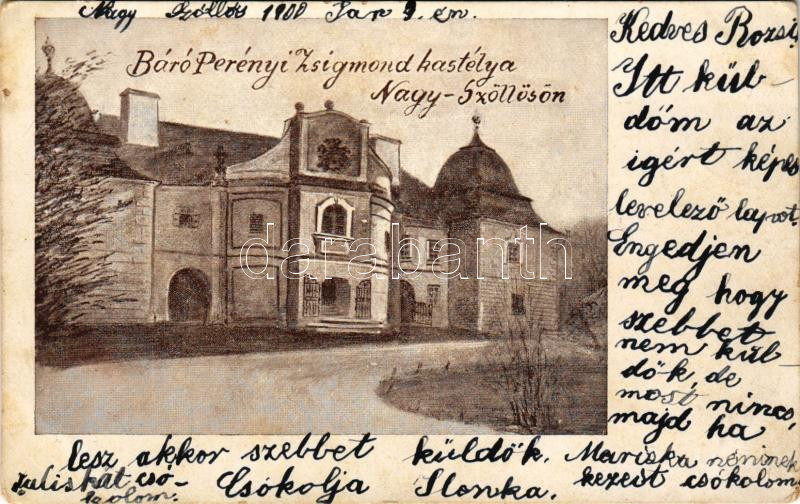 Nagy Szőllős 1900 Jan 9. én
Báró Perényi Zsigmond kastélya
Nagy-Szőllősön
darabanth.com
Kedves Rozsi,
Itt kül-
döm az
igért képes
levelező lapot.
Engedjen
meg hogy
szebbet
nem kül
dök, de
most nincs,
majd ha
lesz akkor szebbet küldök. Mariska néninek
Juliskát csó- Csókolja Ilonka. kezeit csókolom
kolom.